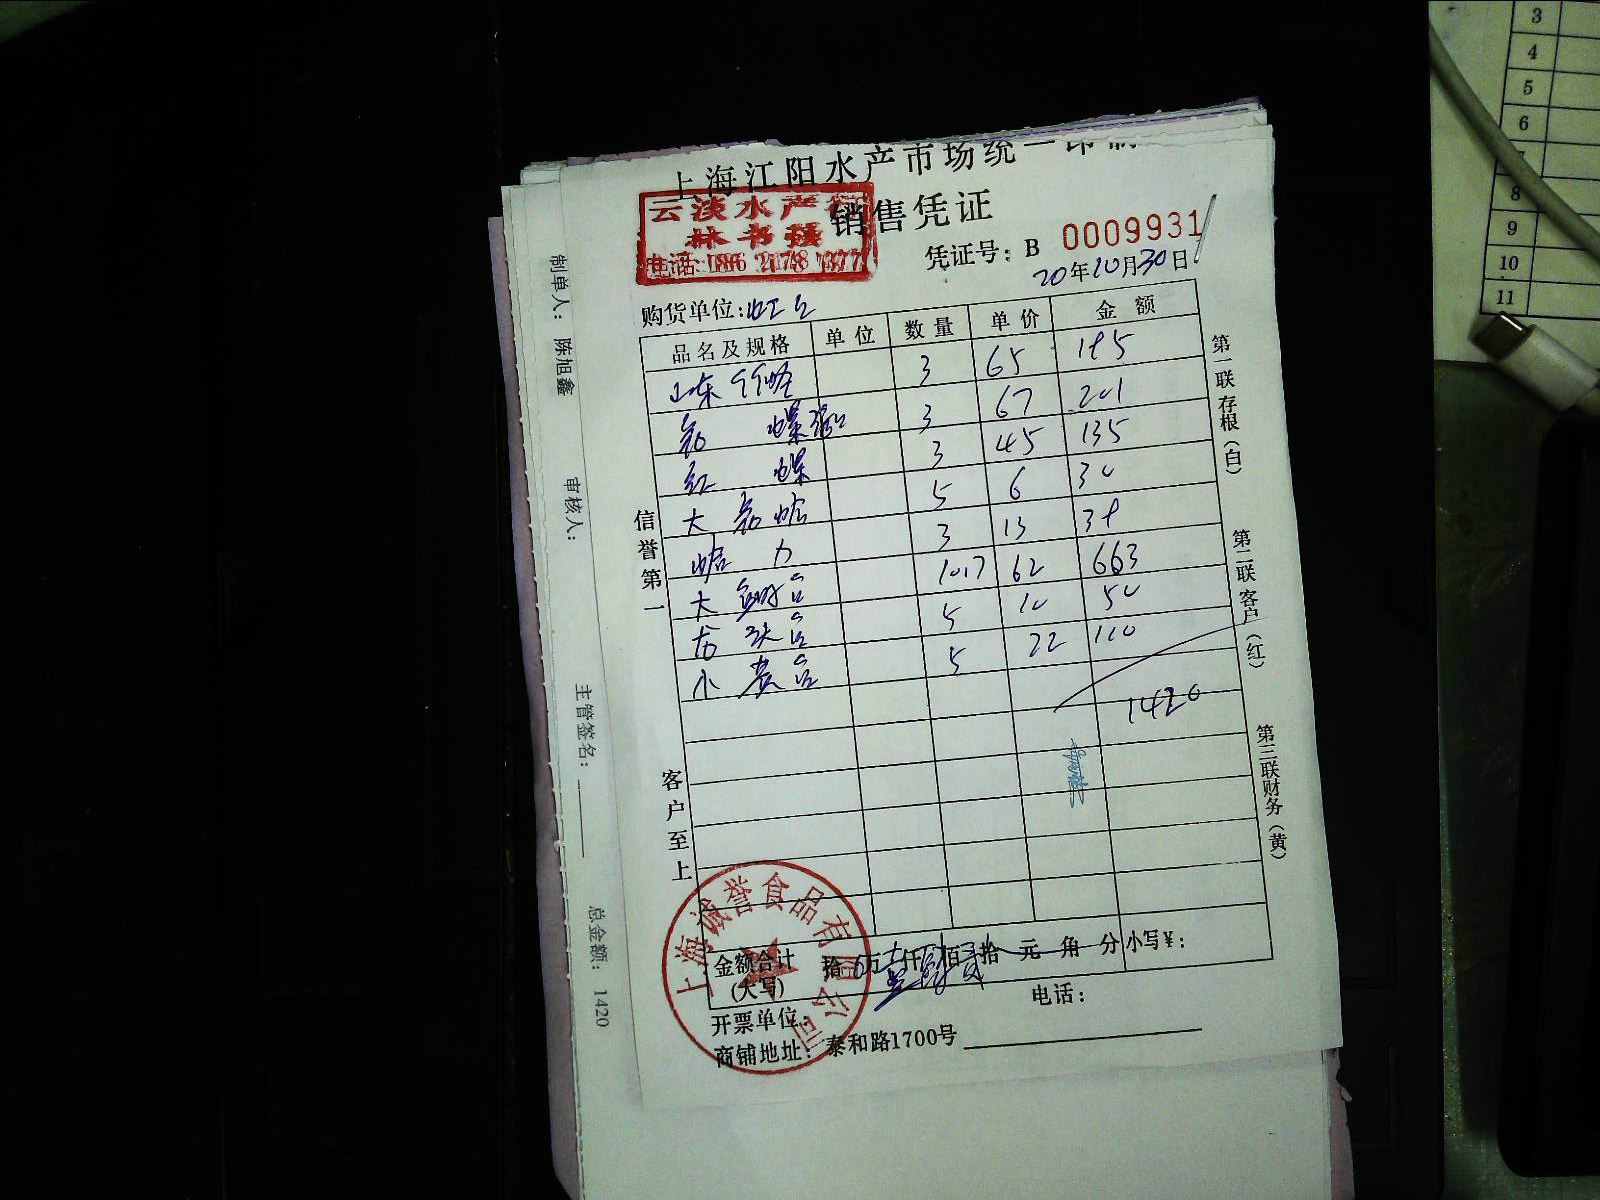 上海江阳水产市场统一印制
销售凭证
云淡水产行
林书强
凭证号：B 0009931
20年10月30日
购货单位：虹
品名及规格 单位 数量 单价 金额
山东 3 65 195
螺 3 67 201
红 螺 3 45 135
大 蛤 5 6 30
蛤 3 13 39
大 10.7 62 663
龙 5 10 50
小 5 22 110
1420
金额合计（大写） 拾 万 仟 佰 拾 元 角 分 小写￥：
开票单位： 电话：
商铺地址：泰和路1700号
信誉第一
客户至上
第一联存根（白）
第二联客户（红）
第三联财务（黄）
上海诚誉食品有限公司
制单人：陈旭鑫
审核人：
主管签名：
总金额：1420
3
4
5
6
7
8
9
10
11